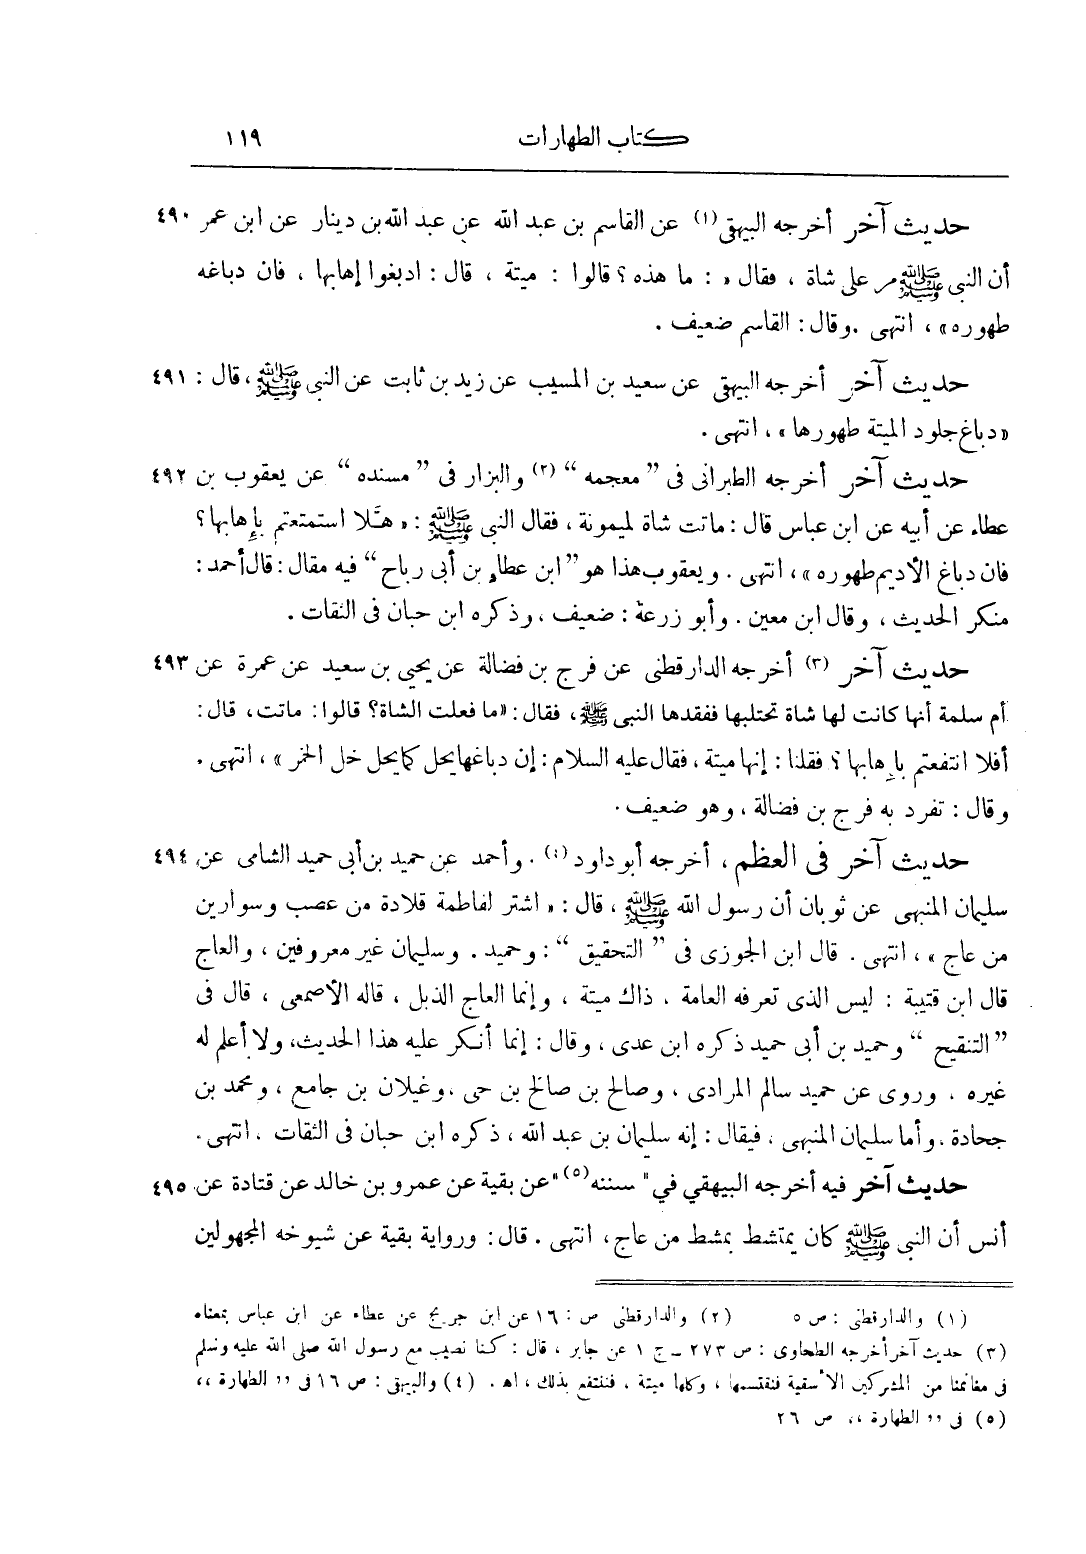 كتاب الطهارات ١١٩
حديث آخر أخرجه البيهقى (١) عن القاسم بن عبد الله عن عبد الله بن دينار عن ابن عمر ٤٩٠
أن النبى ﷺ مر على شاة ، فقال « : ما هذه ؟ قالوا : ميتة ، قال : ادبغوا إهابها ، فان دباغه
طهوره» ، انتهى . وقال : القاسم ضعيف .
حديث آخر أخرجه البيهقى عن سعيد بن المسيب عن زيد بن ثابت عن النبى ﷺ ، قال : ٤٩١
«دباغ جلود الميتة طهورها» ، انتهى .
حديث آخر أخرجه الطبرانى فى ”معجمه“ (٢) والبزار فى ”مسنده“ عن يعقوب بن ٤٩٢
عطاء عن أبيه عن ابن عباس قال : ماتت شاة لميمونة ، فقال النبى ﷺ : « هلَّا استمتعتم بإِهابها ؟
فان دباغ الأديم طهوره » ، انتهى . ويعقوب هذا هو ”ابن عطاء بن أبى رباح“ فيه مقال : قال أحمد :
منكر الحديث ، وقال ابن معين . وأبو زرعة : ضعيف ، وذكره ابن حبان فى الثقات .
حديث آخر (٣) أخرجه الدارقطنى عن فرج بن فضالة عن يحيى بن سعيد عن عمرة عن ٤٩٣
أم سلمة أنها كانت لها شاة تحتلبها ففقدها النبى ﷺ ، فقال : «ما فعلت الشاة؟ قالوا : ماتت، قال :
أفلا انتفعتم بإِهابها ؟ فقلنا : إنها ميتة ، فقال عليه السلام : إن دباغها يحل كما يحل خل الخمر » ، انتهى .
وقال : تفرد به فرج بن فضالة ، وهو ضعيف .
حديث آخر فى العظم ، أخرجه أبو داود (٤) . وأحمد عن حميد بن أبى حميد الشامى عن ٤٩٤
سليمان المنبهى عن ثوبان أن رسول الله ﷺ ، قال : « اشتر لفاطمة قلادة من عصب وسوارين
من عاج » ، انتهى . قال ابن الجوزى فى ” التحقيق “ : وحميد . وسليمان غير معروفين ، والعاج
قال ابن قتيبة : ليس الذى تعرفه العامة ، ذاك ميتة ، وإنما العاج الذبل ، قاله الأصمعى ، قال فى
”التنقيح “ وحميد بن أبى حميد ذكره ابن عدى ، وقال : إنما أنكر عليه هذا الحديث، ولا أعلم له
غيره ، وروى عن حميد سالم المرادى ، وصالح بن صالح بن حى ، وغيلان بن جامع ، ومحمد بن
جحادة ، وأما سليمان المنبهى ، فيقال : إنه سليمان بن عبد الله ، ذكره ابن حبان فى الثقات ، انتهى .
حديث آخر فيه أخرجه البيهقي في" سننه(٥)"عن بقية عن عمرو بن خالد عن قتادة عن ٤٩٥
أنس أن النبى ﷺ كان يمتشط بمشط من عاج ، انتهى . قال : ورواية بقية عن شيوخه المجهولين
(١) والدارقطنى : ص ٥ (٢) والدارقطنى ص : ١٦ عن ابن جريج عن عطاء عن ابن عباس بمعناه
(٣) حديث آخر أخرجه الطحاوى : ص ٢٧٣ ـ ج ١ عن جابر ، قال : كنا نصيب مع رسول الله صلى الله عليه وسلم
فى مغانمنا من المشركين الأسقية فنقتسمها ، وكلها ميتة ، فننتفع بذلك ، اهـ . (٤) والبيهقى : ص ١٦ فى ,, الطهارة ،،
(٥) فى ,, الطهارة ،، ص ٢٦